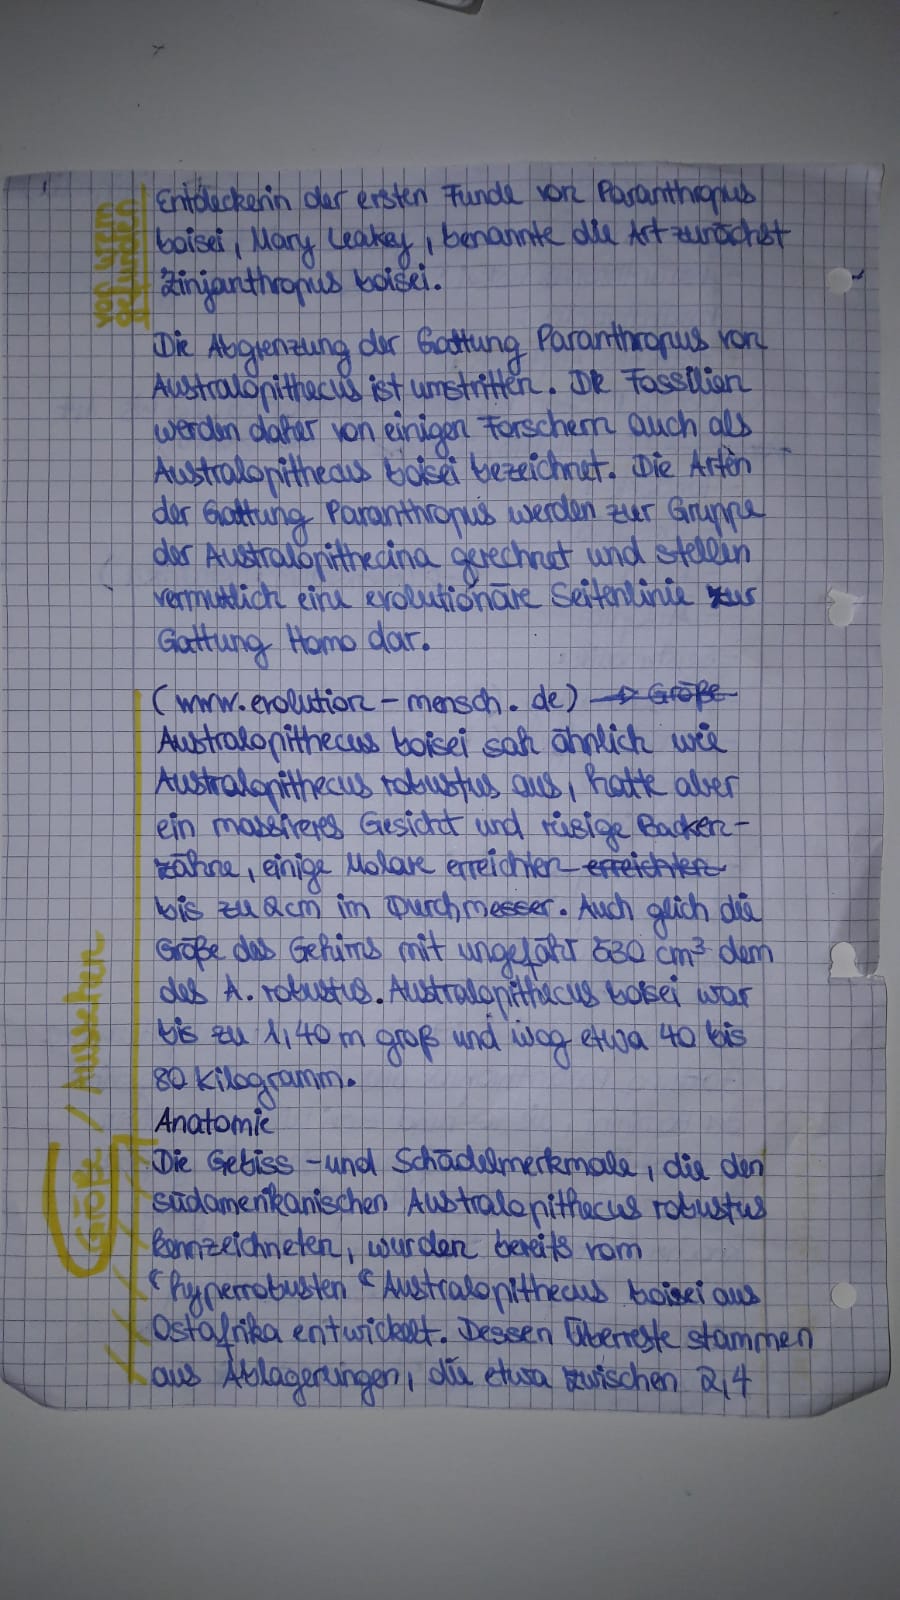 von wem gefunden
Entdeckerin der ersten Funde von Paranthropus
boisei, Mary Leakey, benannte die Art zunächst
Zinjanthropus boisei.
Die Abgrenzung der Gattung Paranthropus von
Australopithecus ist umstritten. Die Fossilien
werden daher von einigen Forschern auch als
Australopithecus boisei bezeichnet. Die Arten
der Gattung Paranthropus werden zur Gruppe
der Australopithecina gerechnet und stellen
vermutlich eine evolutionäre Seitenlinie zur
Gattung Homo dar.
(www.evolution-mensch.de) → Größe
Australopithecus boisei sah ähnlich wie
Australopithecus robustus aus, hatte aber
ein massiveres Gesicht und riesige Backen-
zähne, einige Molare erreichten erreichten
bis zu 2cm im Durchmesser. Auch glich die
Größe des Gehirns mit ungefähr 530 cm³ dem
des A. robustus. Australopithecus boisei war
bis zu 1,40 m groß und wog etwa 40 bis
80 Kilogramm.
Größe / Aussehen
Anatomie
Die Gebiss-und Schädelmerkmale, die den
südamerikanischen Australopithecus robustus
kennzeichneten, wurden bereits vom
"hyperrobusten" Australopithecus boisei aus
Ostafrika entwickelt. Dessen Überreste stammen
aus Ablagerungen, die etwa zwischen 2,4